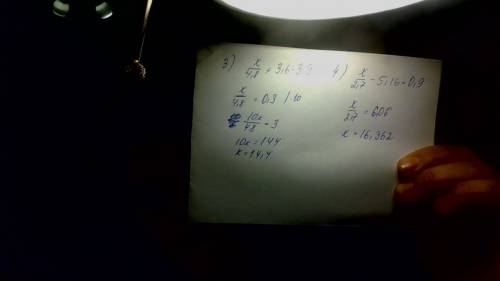 3) x/4,8 + 3,6=3,9
x/4,8 = 0,3 |·10
10x/48 = 3
10x=144
x=14,4
4) x/2,7 - 5,16=0,9
x/2,7 = 6,06
x=16,362